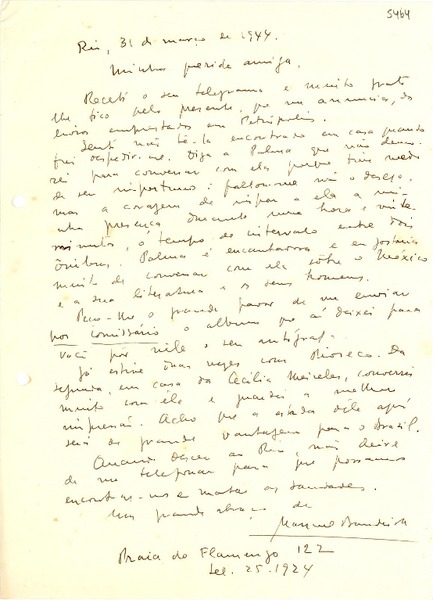 5464
Rio, 31 de março de 1944.
Minha querida amiga.
Recebi o seu telegrama e muito grato
lhe fico pelo presente, que me anuncia, dos
livros emprestados em Petrópolis.
Senti não tê-la encontrado em casa quando
fui despedir-me. Diga a Palma que não demo-
rei para conversar com ela porque tive medo
de ser importuno: faltou-me não o desejo,
mas a coragem de impor a ela a mi-
nha presença durante uma hora e vinte
minutos, o tempo de intervalo entre dois
ônibus. Palma é encantadora e eu gostaria
muito de conversar com ela sôbre o México
e a sua literatura e os seus homens.
Peço-lhe o grande favor de me enviar
por comissário o album que aí deixei para
você pôr nele o seu autógrafo.
Já estive duas vezes com Rioseco. Da
segunda, em casa da Cecilia Meireles, conversei
muito com ele e guardei a melhor
impressão. Acho que a estada dele aqui
será de grande vantagem para o Brasil.
Quando descer ao Rio, não deixe
de me telefonar para que possamos
encontrar-nos e matar as saudades.
Um grande abraço de
Manuel Bandeira
Praia do Flamengo 122
Tel. 25.1924